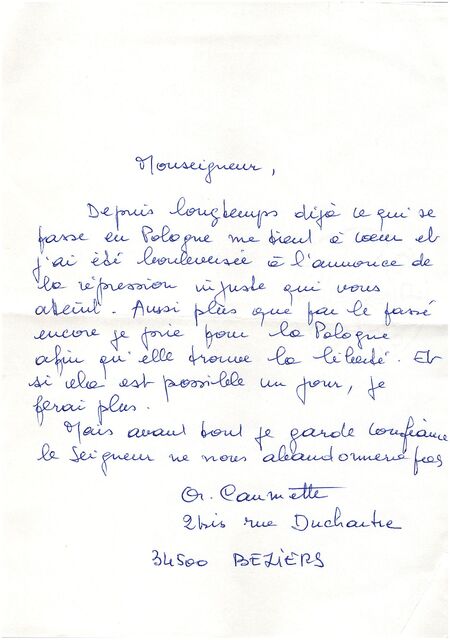 Monseigneur,
Depuis longtemps déjà ce qui se
passe en Pologne me tient à coeur et
j'ai été bouleversée à l'annonce de
la répression injuste qui vous
atteint. Aussi plus que par le passé
encore je prie pour la Pologne
afin qu'elle trouve la liberté. Et
si cela est possible un jour, je
ferai plus.
Mais avant tout je garde confiance
le Seigneur ne nous abandonnera pas
Caumette
2bis rue Duchartre
34500 BEZIERS